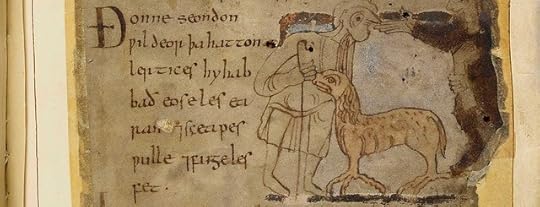 Ðonne seondon
ƿildeor þa hatton
lertices hy hab
bað eoseles ea
ran ⁊ sceapes
ƿulle ⁊ fugeles
fet.